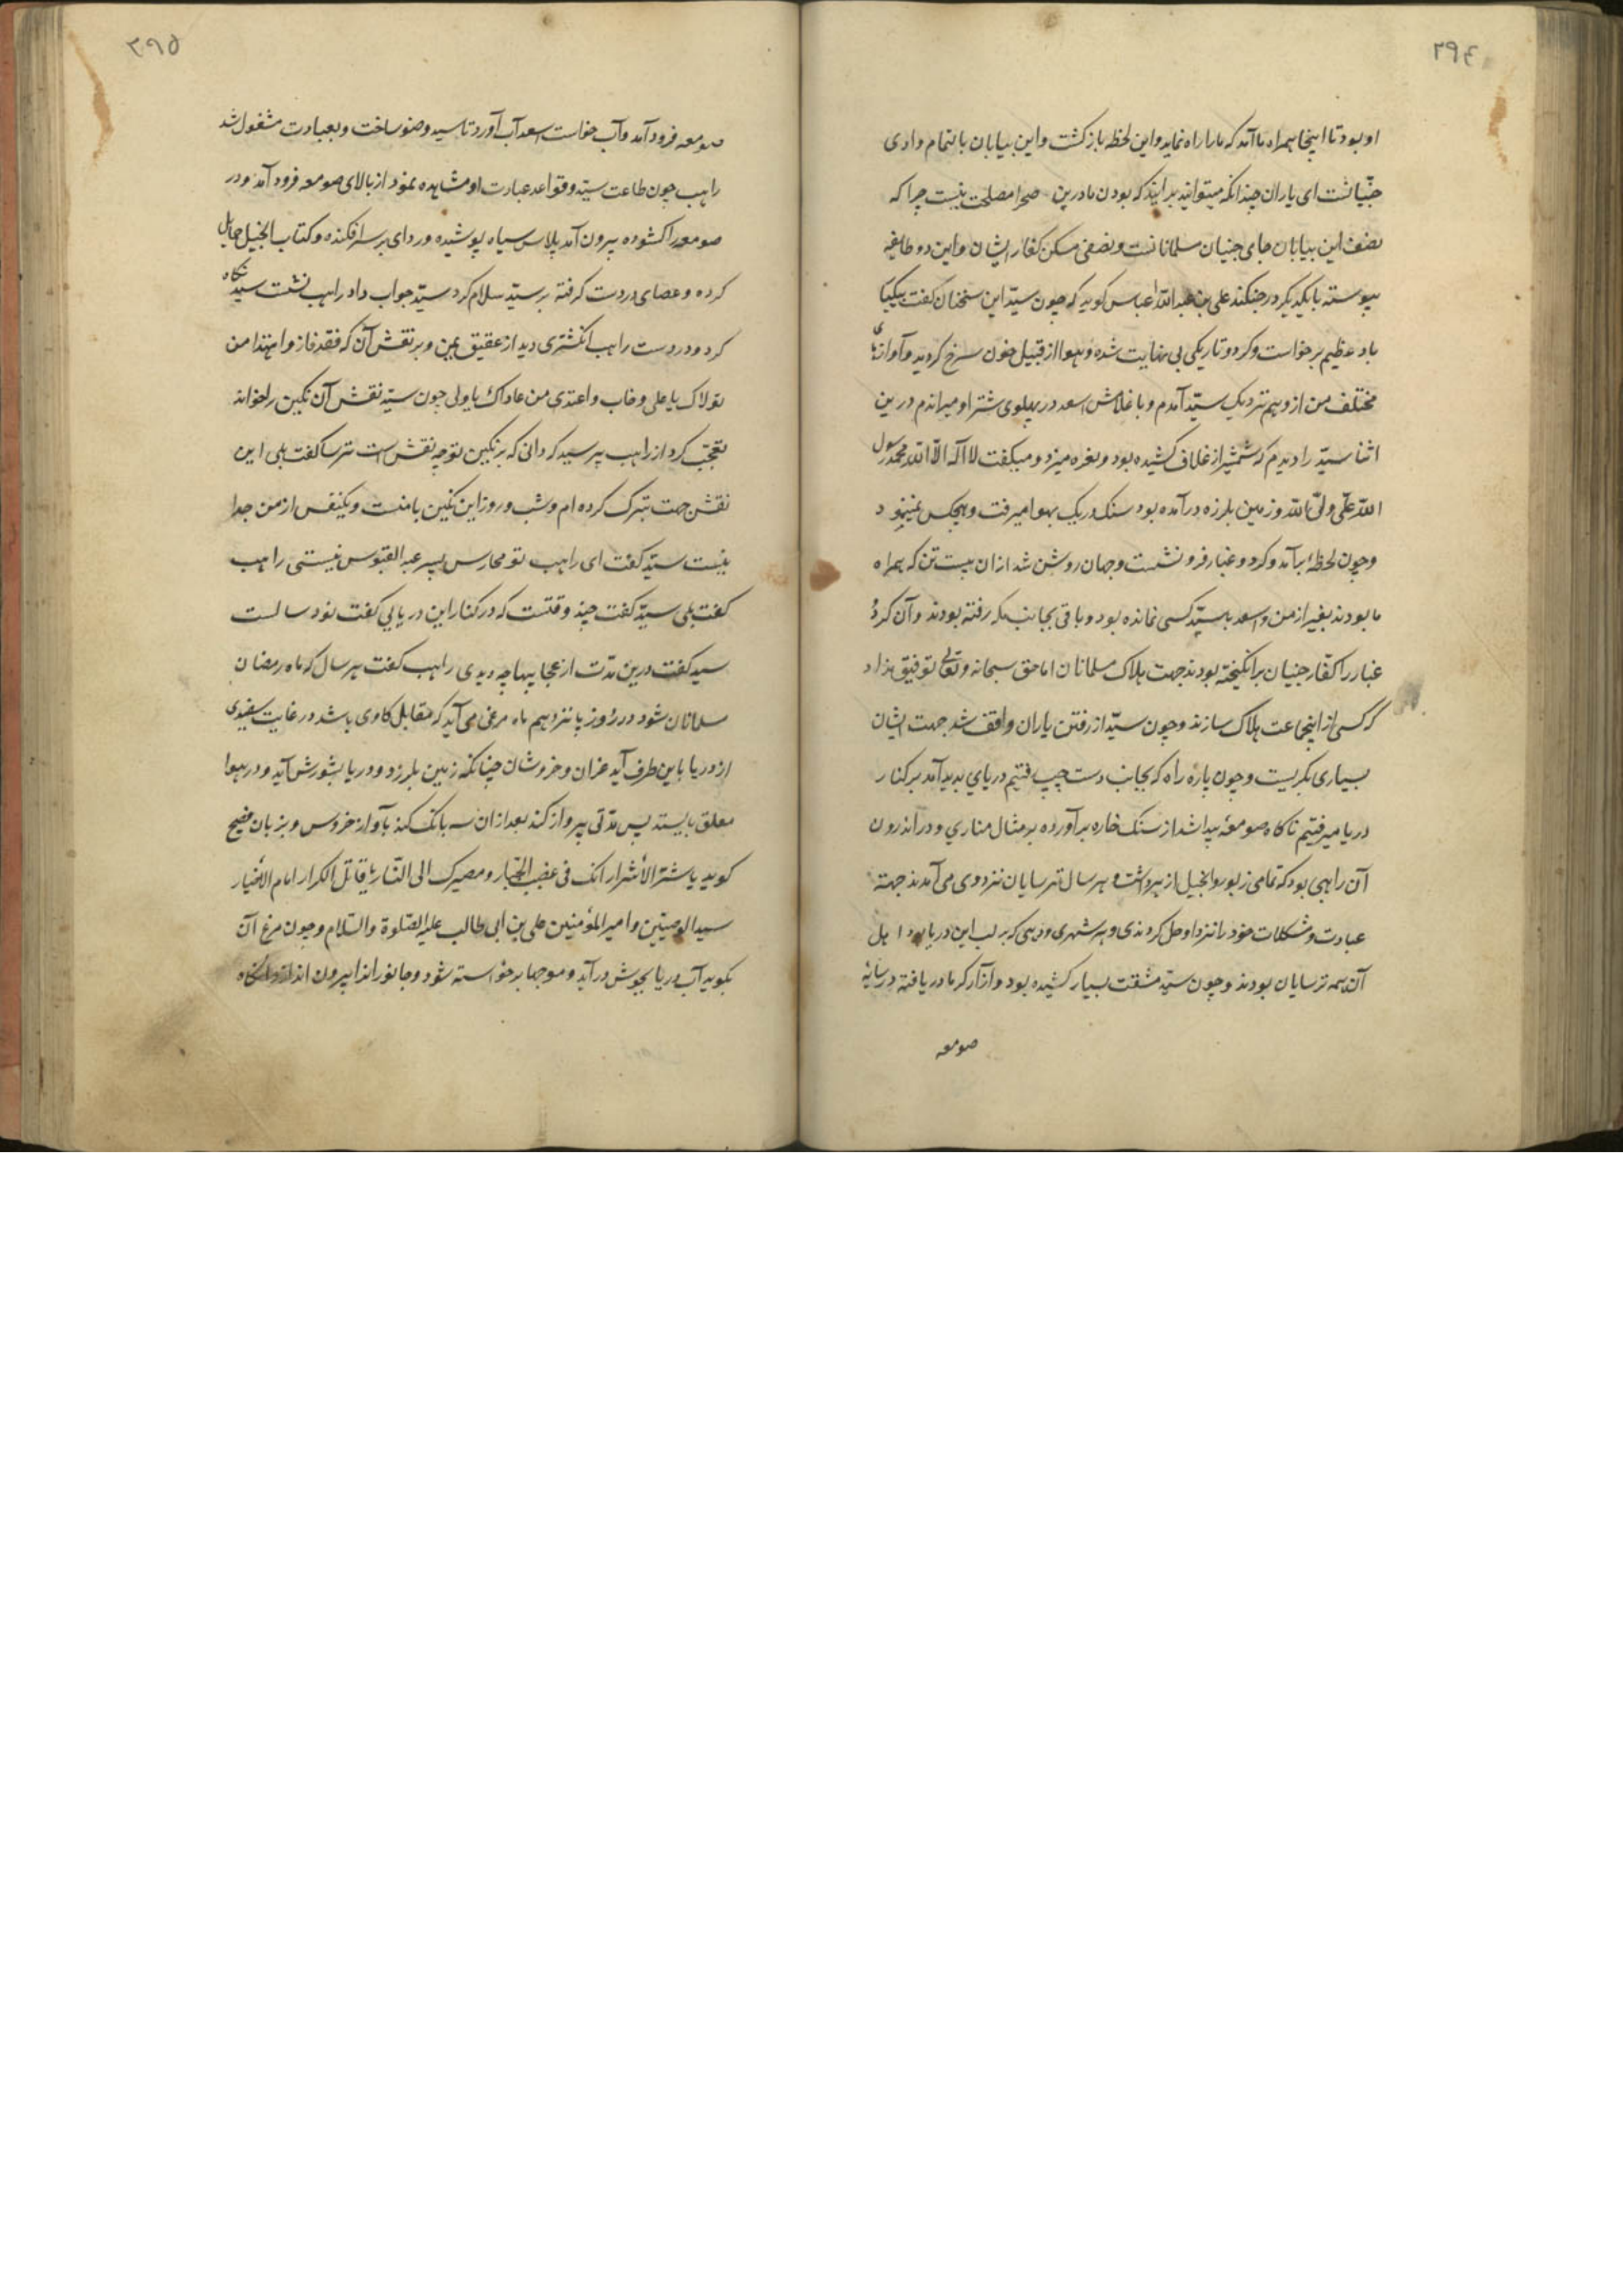 ۲۹۴
او بود تا اینجا همراه ما آمد که ما را راه نماید و این لحظه بازکشت و این بیابان بالتمام وادی
جنّیانست ای یاران چندانکه میتوانید برانید که بودن ما درین صحرا مصلحت نیست چرا که
نصف این بیابان جای جنیان مسلمانانست و نصفی مسکن کفار ایشان و این دو طایفه
پیوسته با یکدیکر در جنکند علی بن عبدالله عباس کوید که چون سیّد این سخنان کفت
باد عظیم برخواست و کرد و تاریکی بی نهایت شده و هوا از قبیل خون سرخ کردید و آوازهای
مختلف من از وهم نزدیک سیّد آمدم و با غلامش اسعد در پهلوی شتر او میراندم درین
اثنا سیّد را دیدم که شمشیر از غلاف کشیده بود و نعره میزد و میکفت لا اله الّا الله محمد رسول
الله علی ولیّ الله و زمین بلرزه درآمده بود سنک و ریک بهوا میرفت و هیچکس نمینمود
و چون لحظهٔ برآمد و کرد و غبار فرو نشست و جهان روشن شد از ان بیست تن که همراه
ما بودند بغیر از من و اسعد با سیّد کسی نمانده بود و باقی بجانب مکه رفته بودند و آن کرد و
غبار را کفّار جنیان برانکیخته بودند جهت هلاک مسلمانان اما حق سبحانه و تعالی توفیق نداد
که کسی از اینجماعت هلاک سازند و چون سیّد از رفتن یاران واقف شد جهت ایشان
بسیاری بکریست و چون پاره راه که بجانب دست چپ رفتیم دریای بدید آمد بر کنار
دریا میرفتیم ناکاه صومعهٔ پیدا شد از سنک خاره برآورده بر مثال مناری و در اندرون
آن راهبی بود که تمامی زبور و انجیل از بر داشت و هر سال ترسایان نزد وی می آمدند جهة
عبادت و مشکلات خود را نزد او حل کردندی و هر شهری و دیهی که بر لب این دریا بود اهل
آن همه ترسایان بودند و چون سیّد مشقت بسیار کشیده بود و آزار کرما دریافته در سایهٔ
صومعه
۲۹۵
صومعه فرود آمد و آب خواست اسعد آب آورد تا سید وضو ساخت و بعبادت مشغول شد
راهب چون طاعت سیّد و قواعد عبادت او مشاهده نمود از بالای صومعه فرود آمد و در
صومعه را کشوده بیرون آمد پلاس سیاه پوشیده و ردای بر سر افکنده و کتاب انجیل حمایل
کرده و عصای در دست کرفته بر سیّد سلام کرد سیّد جواب داد راهب نشست سیّد نکاه
کرد و در دست راهب انکشتری دید از عقیق یمن و بر نقش آن که فقد فاز و اهتدا من
تولاک یا علی و خاب و اعتدی من عاداک یا ولی چون سیّد نقش آن نکین را بخواند
تعجّب کرد از راهب پرسید که دانی که بر نکین تو چه نقش است ترسا کفت بلی این
نقش جهت تبرک کرده ام و شب و روز این نکین با منست و یکنفس از من جدا
نیست سیّد کفت ای راهب تو محارس پسر عبد القبوس نیستی راهب
کفت بلی سیّد کفت چند وقتست که در کنار این دریایی کفت نود سالست
سید کفت درین مدّت از عجایبها چه دیدی راهب کفت هر سال که ماه رمضان
مسلمانان شود در روز پانزدهم ماه مرغی می آید که مقابل کاوی باشد در غایت سفیدی
از دریا باین طرف آید غران و خروشان چنانکه زمین بلرزد و دریا بشورش آید و در هوا
معلق بایستد پس مدّتی پرواز کند بعد از ان سه بانک کند بآواز خروس و بزبان فصیح
کوید یا شرّ الأشرار انک فی غضب الجبّار و مصیرک الی النّار یا قاتل الکرار امام الاخیار
سید الوصیّین و امیر المؤمنین علی بن ابی طالب علیه الصّلوة والسّلام و چون مرغ آن
بکوید آب دریا بجوش درآید و موجها برخواسته شود و جانوران را بیرون اندازد